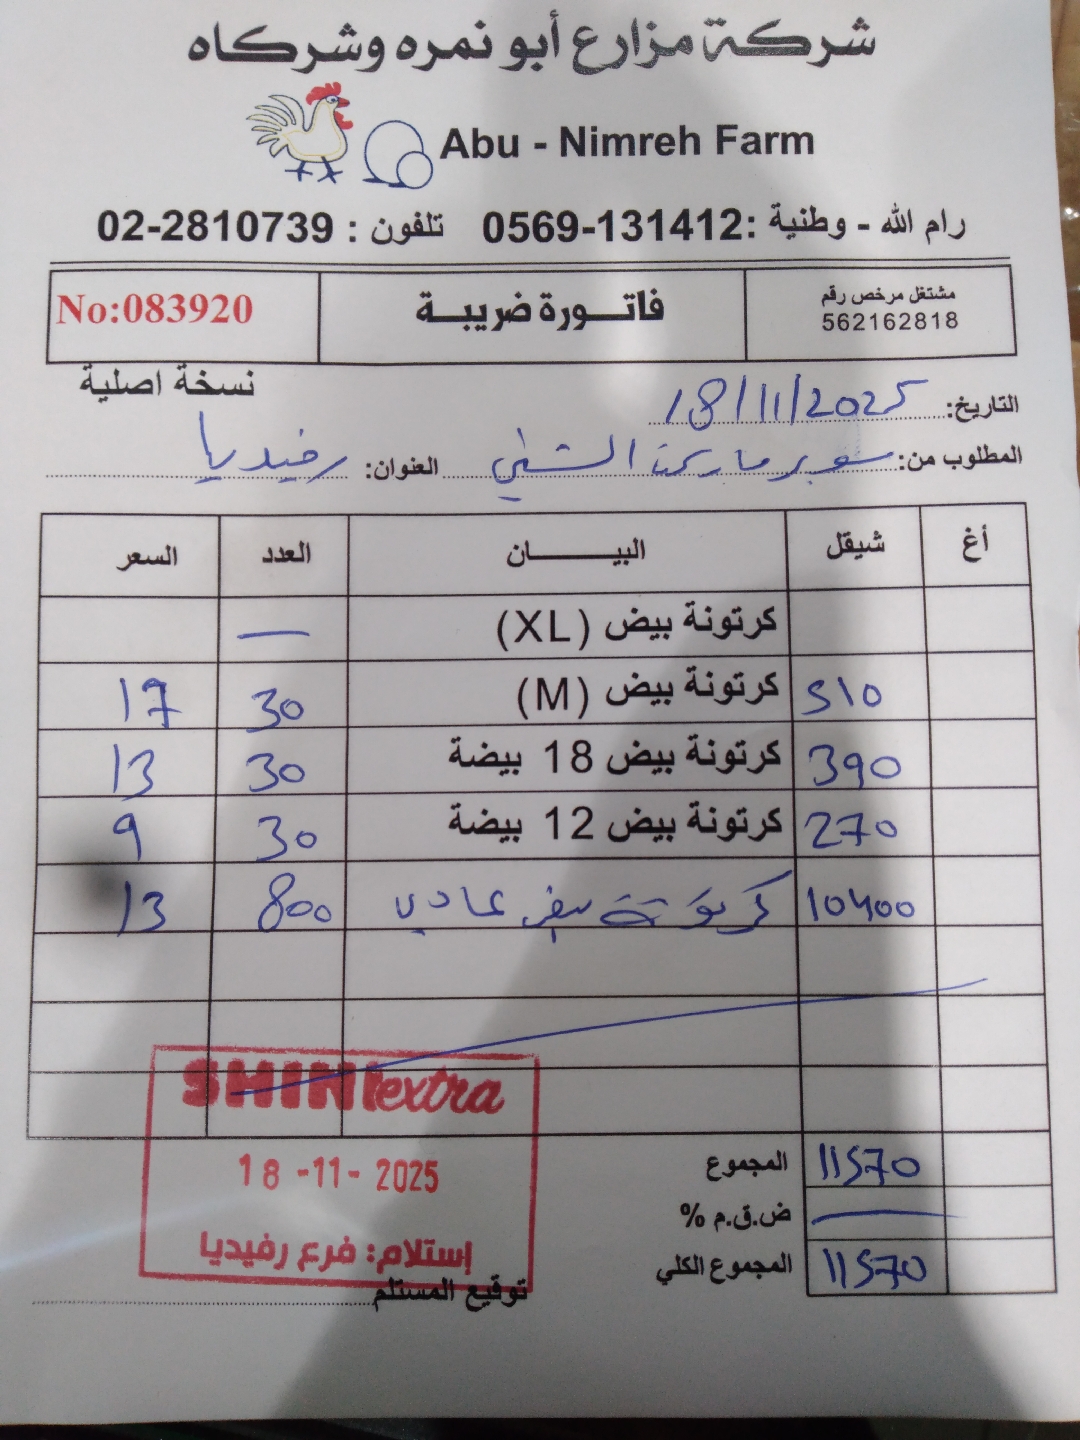 شركة مزارع أبو نمره وشركاه
Abu - Nimreh Farm
رام الله - وطنية :0569-131412 تلفون : 02-2810739
مشتغل مرخص رقم
562162818
فاتورة ضريبة
No:083920
نسخة اصلية
التاريخ: 18/11/2025
المطلوب من: سوبر ماركت الشني العنوان: رفيديا
أغ شيقل البيان العدد السعر
كرتونة بيض (XL) —
510 كرتونة بيض (M) 30 17
390 كرتونة بيض 18 بيضة 30 13
270 كرتونة بيض 12 بيضة 30 9
10400 كرتونة بيض عادي 800 13
المجموع 11570
ض.ق.م %
المجموع الكلي 11570
SHINI extra
18 -11- 2025
إستلام: فرع رفيديا
توقيع المستلم